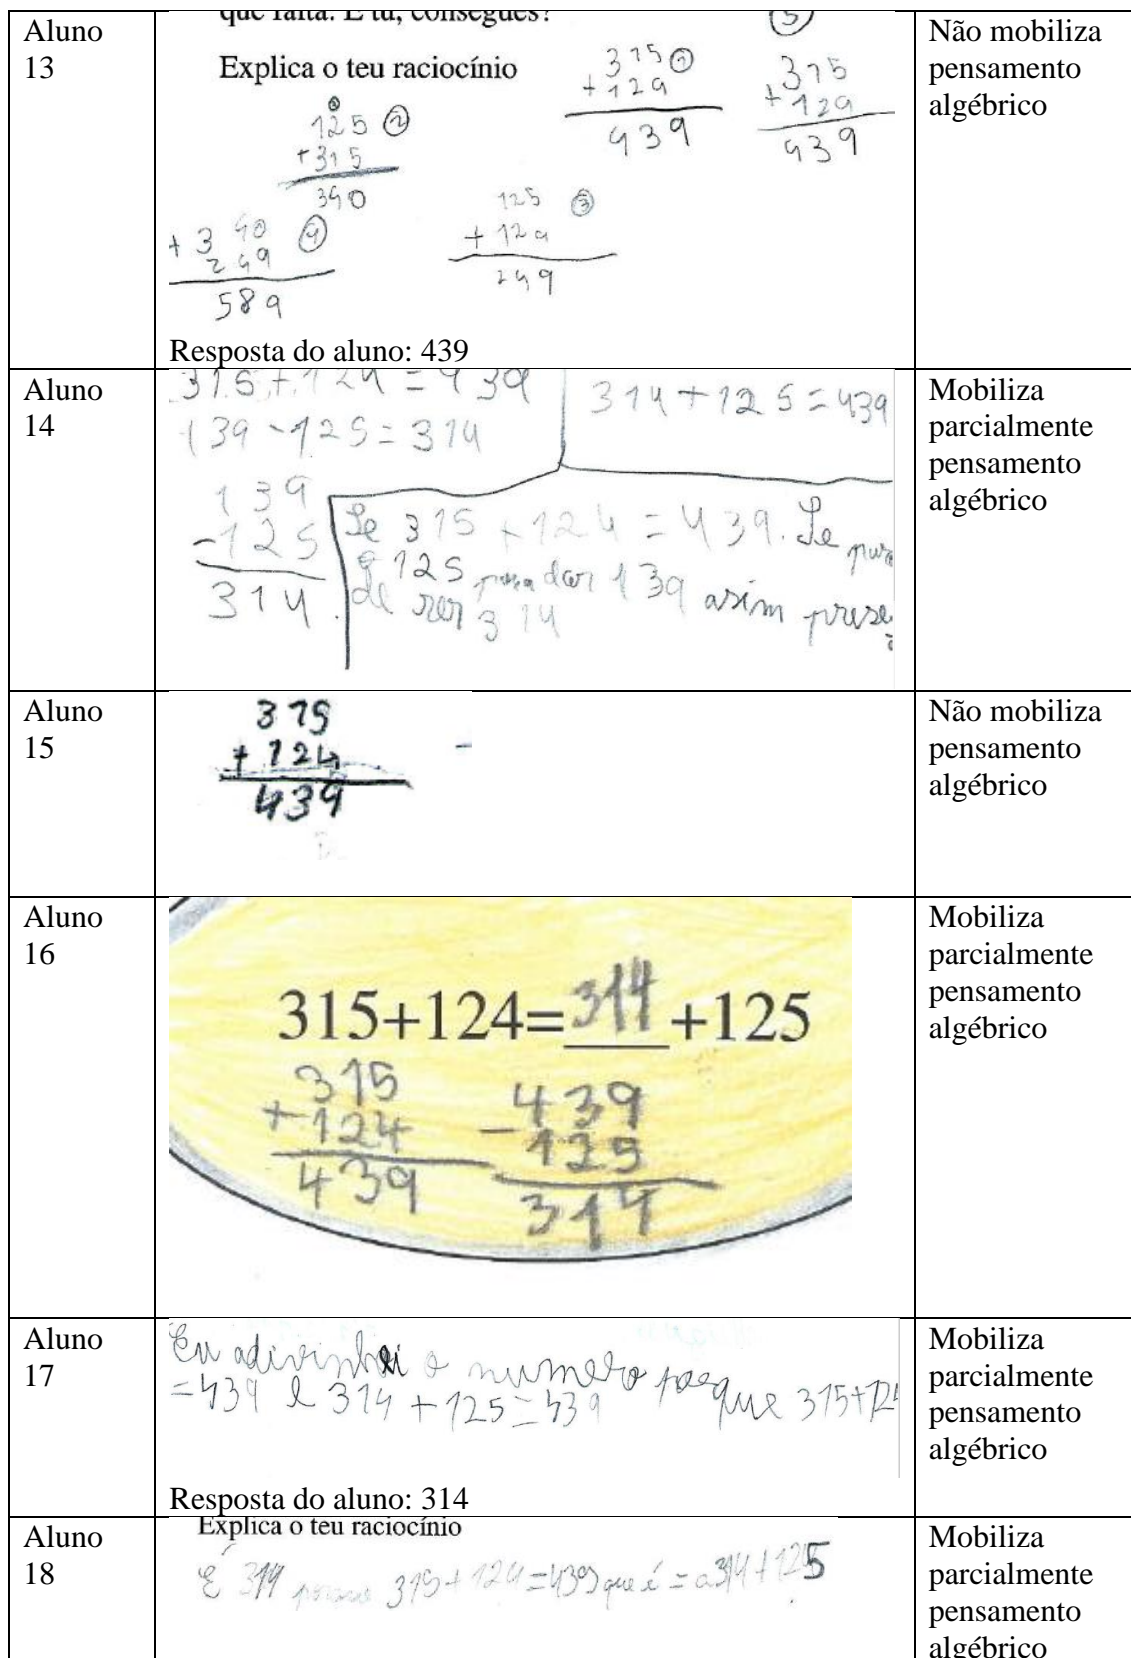 Aluno
13
que falta. E tu, consegues?
Explica o teu raciocínio
3
315 1
+ 129
439
315
+ 129
439
125 2
+315
390
125 3
+ 129
249
+ 390 4
249
589
Resposta do aluno: 439
Não mobiliza
pensamento
algébrico
Aluno
14
315 + 124 = 439
139 - 125 = 314
314 + 125 = 439
139
- 125
314
Se 315 + 124 = 439. Se
e 125 para dar 139 asim
de ser 314
Mobiliza
parcialmente
pensamento
algébrico
Aluno
15
315
+ 124
439
Não mobiliza
pensamento
algébrico
Aluno
16
315+124=314+125
315
+ 124
439
439
- 125
314
Mobiliza
parcialmente
pensamento
algébrico
Aluno
17
Eu adivinhei o numero porque 315+124
=439 e 314+125=439
Resposta do aluno: 314
Mobiliza
parcialmente
pensamento
algébrico
Aluno
18
Explica o teu raciocínio
É 314 porque 315+124=439 que é = a 314+125
Mobiliza
parcialmente
pensamento
algébrico